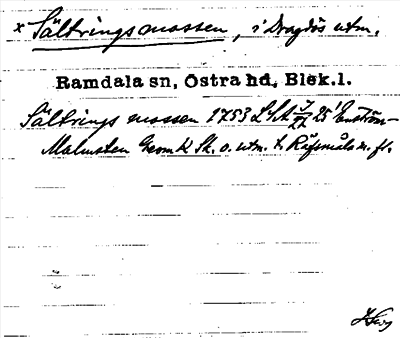 × Sältringsmossen, i Dragsös utm.
Ramdala sn, Östra hd, Blek. l.
Sältrings mossen 1753 LSA 25 Enström-
Malmsten Geom kl Sk. o. utm. t. Räfsmåla m. fl.